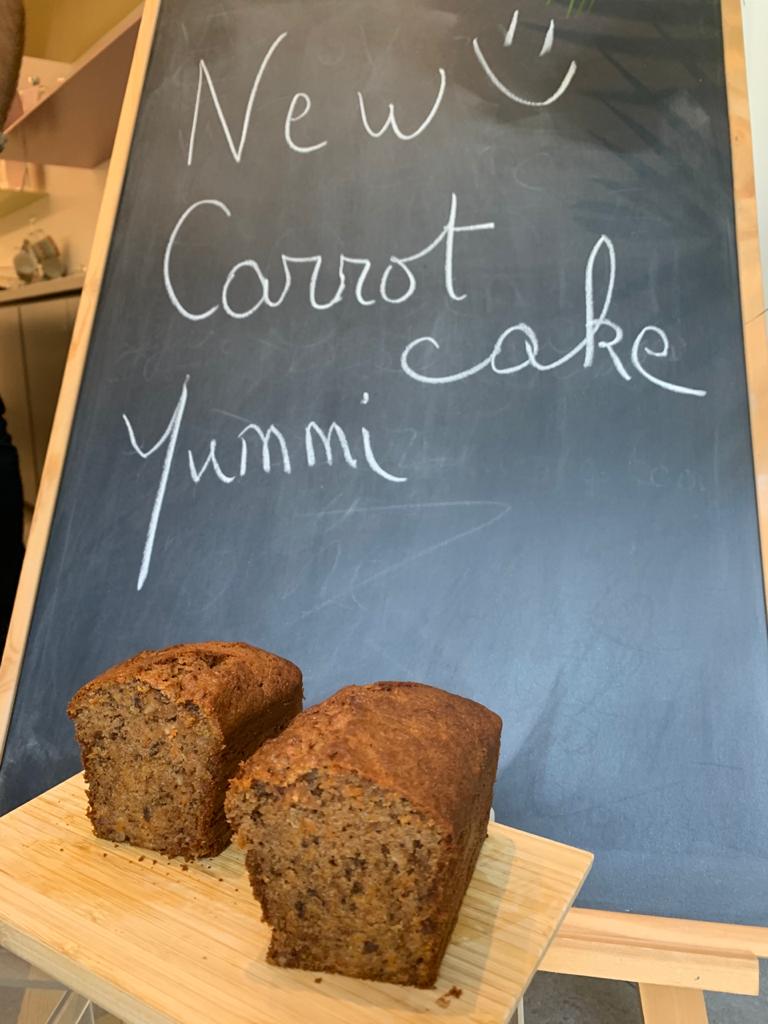 New
Carrot
cake
Yummi